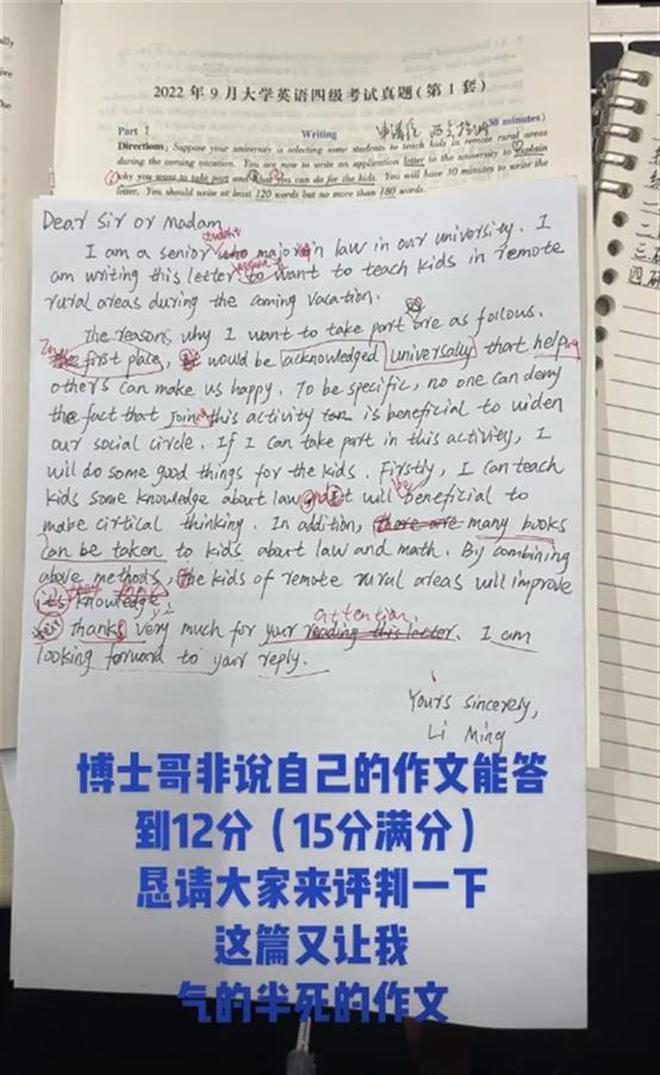 2022年9月大学英语四级考试真题(第1套)
Part I Writing 申请信 30 minutes)
Directions: Suppose your university is selecting some students to teach kids in remote rural areas
during the coming vacation. You are now to write an application letter to the university to explain
why you want to take part and what you can do for the kids. You will have 30 minutes to write the
letter. You should write at least 120 words but no more than 180 words.
Dear Sir or Madam,
student
I am a senior who major in law in our university. I
am writing this letter to want to teach kids in remote
rural areas during the coming vacation.
The reasons why I want to take part are as follows.
In the first place, it would be acknowledged universally that helping
others can make us happy. To be specific, no one can deny
the fact that joining this activity is beneficial to widen
our social circle. If I can take part in this activity, I
will do some good things for the kids. Firstly, I can teach
kids some knowledge about law and it will be beneficial to
make cirtical thinking. In addition, there are many books
can be taken to kids about law and math. By combining
above methods, The kids of remote rural areas will improve
their
it's knowledge.
attention
Thanks very much for your reading this letter. I am
looking forward to your reply.
Yours sincerely,
Li Ming
博士哥非说自己的作文能答
到12分（15分满分）
恳请大家来评判一下
这篇又让我
气的半死的作文